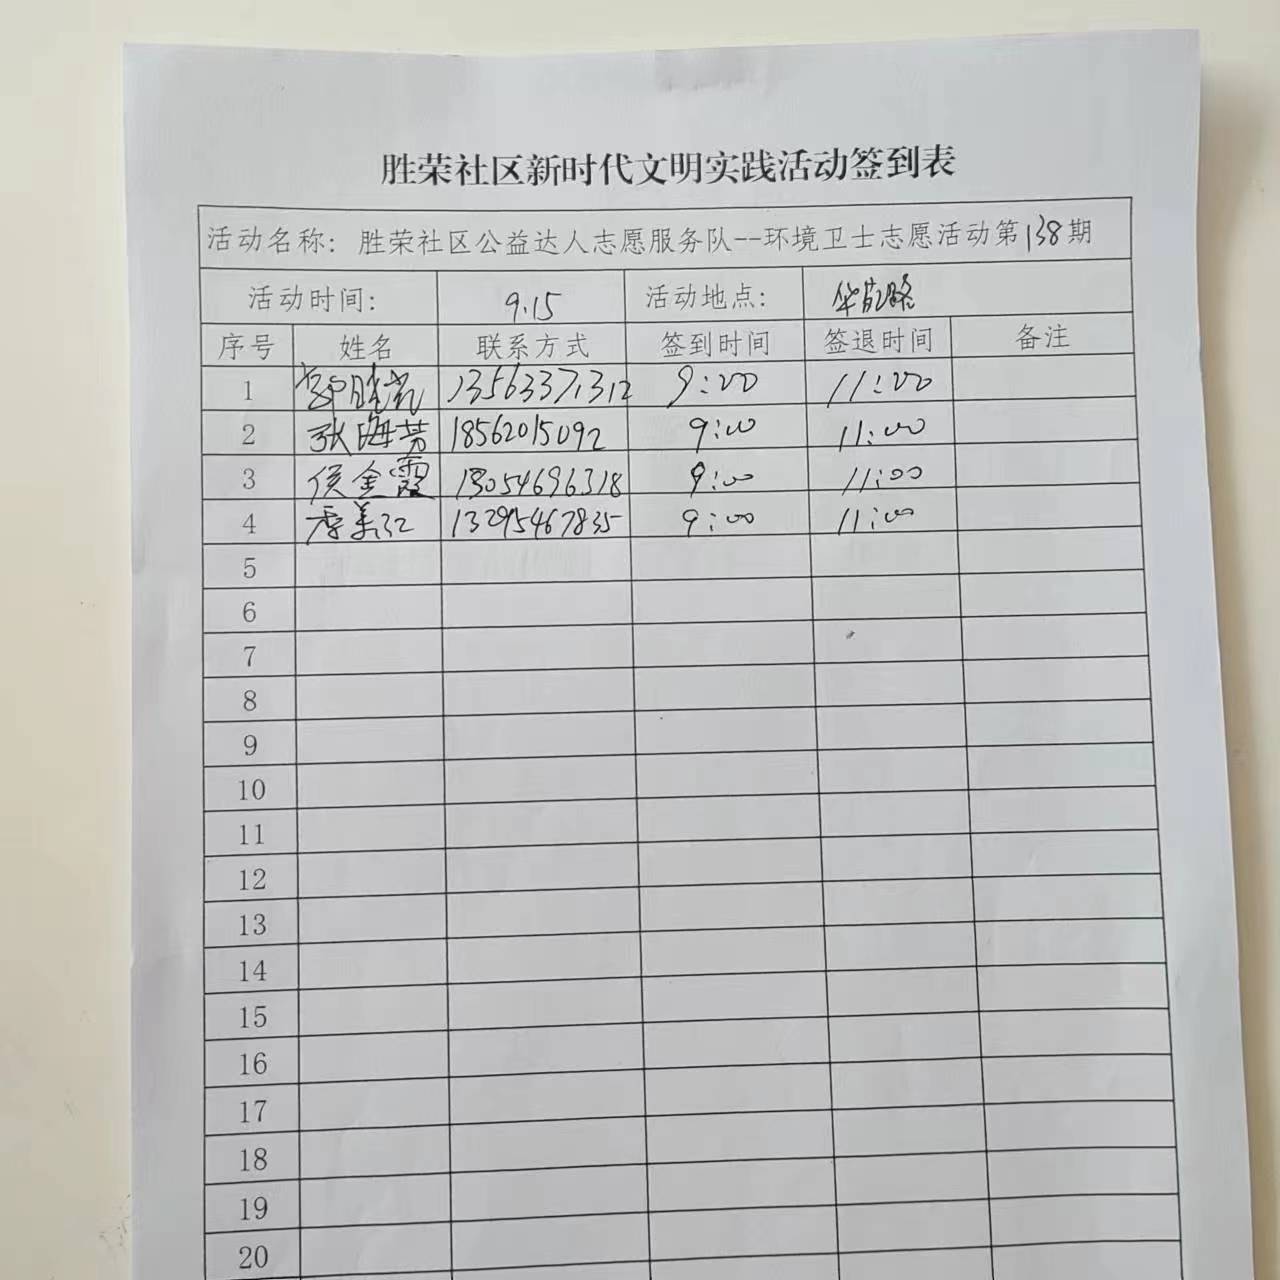 胜荣社区新时代文明实践活动签到表
活动名称：胜荣社区公益达人志愿服务队--环境卫士志愿活动第138期
活动时间： 9.15 活动地点：
序号 姓名 联系方式 签到时间 签退时间 备注
1 13563371312 9:00 11:00
2 张海芳 18562015092 9:00 11:00
3 侯金霞 13054696318 9:00 11:00
4 李美红 13295467835 9:00 11:00
5
6
7
8
9
10
11
12
13
14
15
16
17
18
19
20